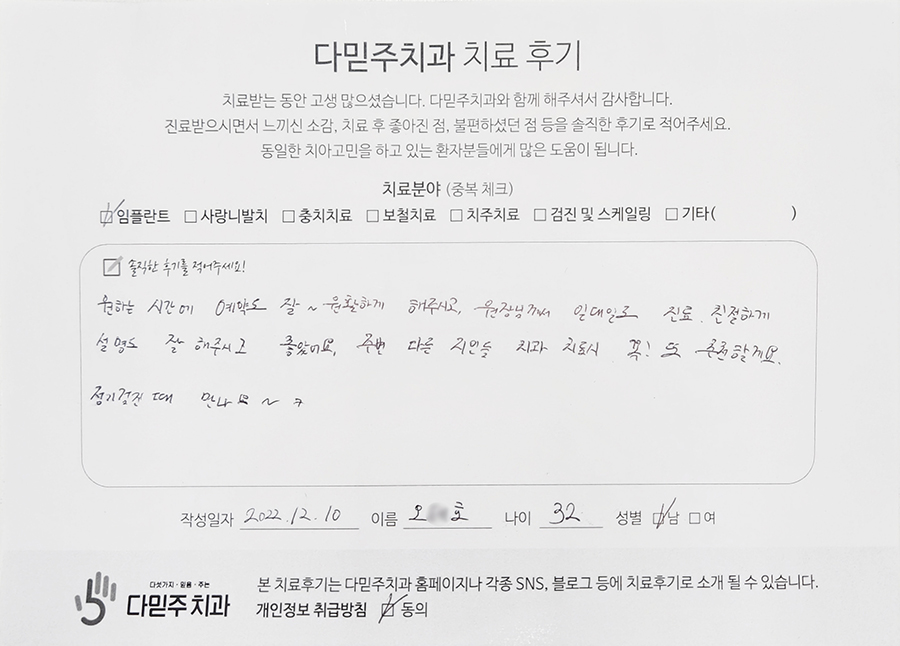 다믿주치과 치료 후기
치료받는 동안 고생 많으셨습니다. 다믿주치과와 함께 해주셔서 감사합니다.
진료받으시면서 느끼신 소감, 치료 후 좋아진 점, 불편하셨던 점 등을 솔직한 후기로 적어주세요.
동일한 치아고민을 하고 있는 환자분들에게 많은 도움이 됩니다.
치료분야 (중복 체크)
임플란트 사랑니발치 충치치료 보철치료 치주치료 검진 및 스케일링 기타( )
솔직한 후기를 적어주세요!
원하는 시간에 예약도 잘~ 원활하게 해주시고, 원장님께서 일대일로 진료. 친절하게
설명도 잘 해주시고 좋았어요, 주변 다른 지인들 치과 치료시 꼭! 또 추천할게요.
정기검진 때 만나요~ ㅋ
작성일자 2022.12.10 이름 오 호 나이 32 성별 남 여
다섯가지·믿음·주는
다믿주치과
본 치료후기는 다믿주치과 홈페이지나 각종 SNS, 블로그 등에 치료후기로 소개 될 수 있습니다.
개인정보 취급방침 동의